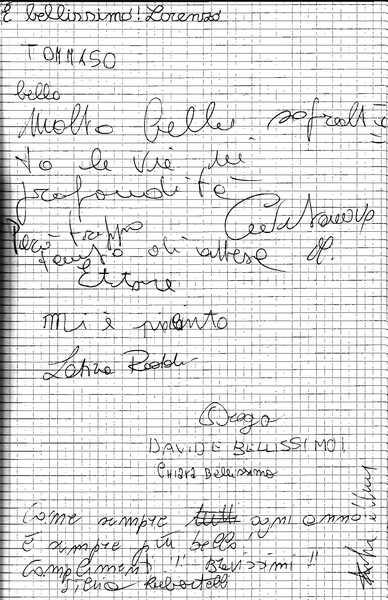 È bellissimo! Lorenzo
TOMMASO
bello
Molto bella soprattut
to le vie in
profondità
Però troppo
tempo di attesa
Ettore
Mi è piaciuto
Diego
DAVIDE BELLISSIMO!
CHIARA Bellissimo
Come sempre ogni anno
È sempre più bello!
Complimenti!! Bravissimi!!
Silvia